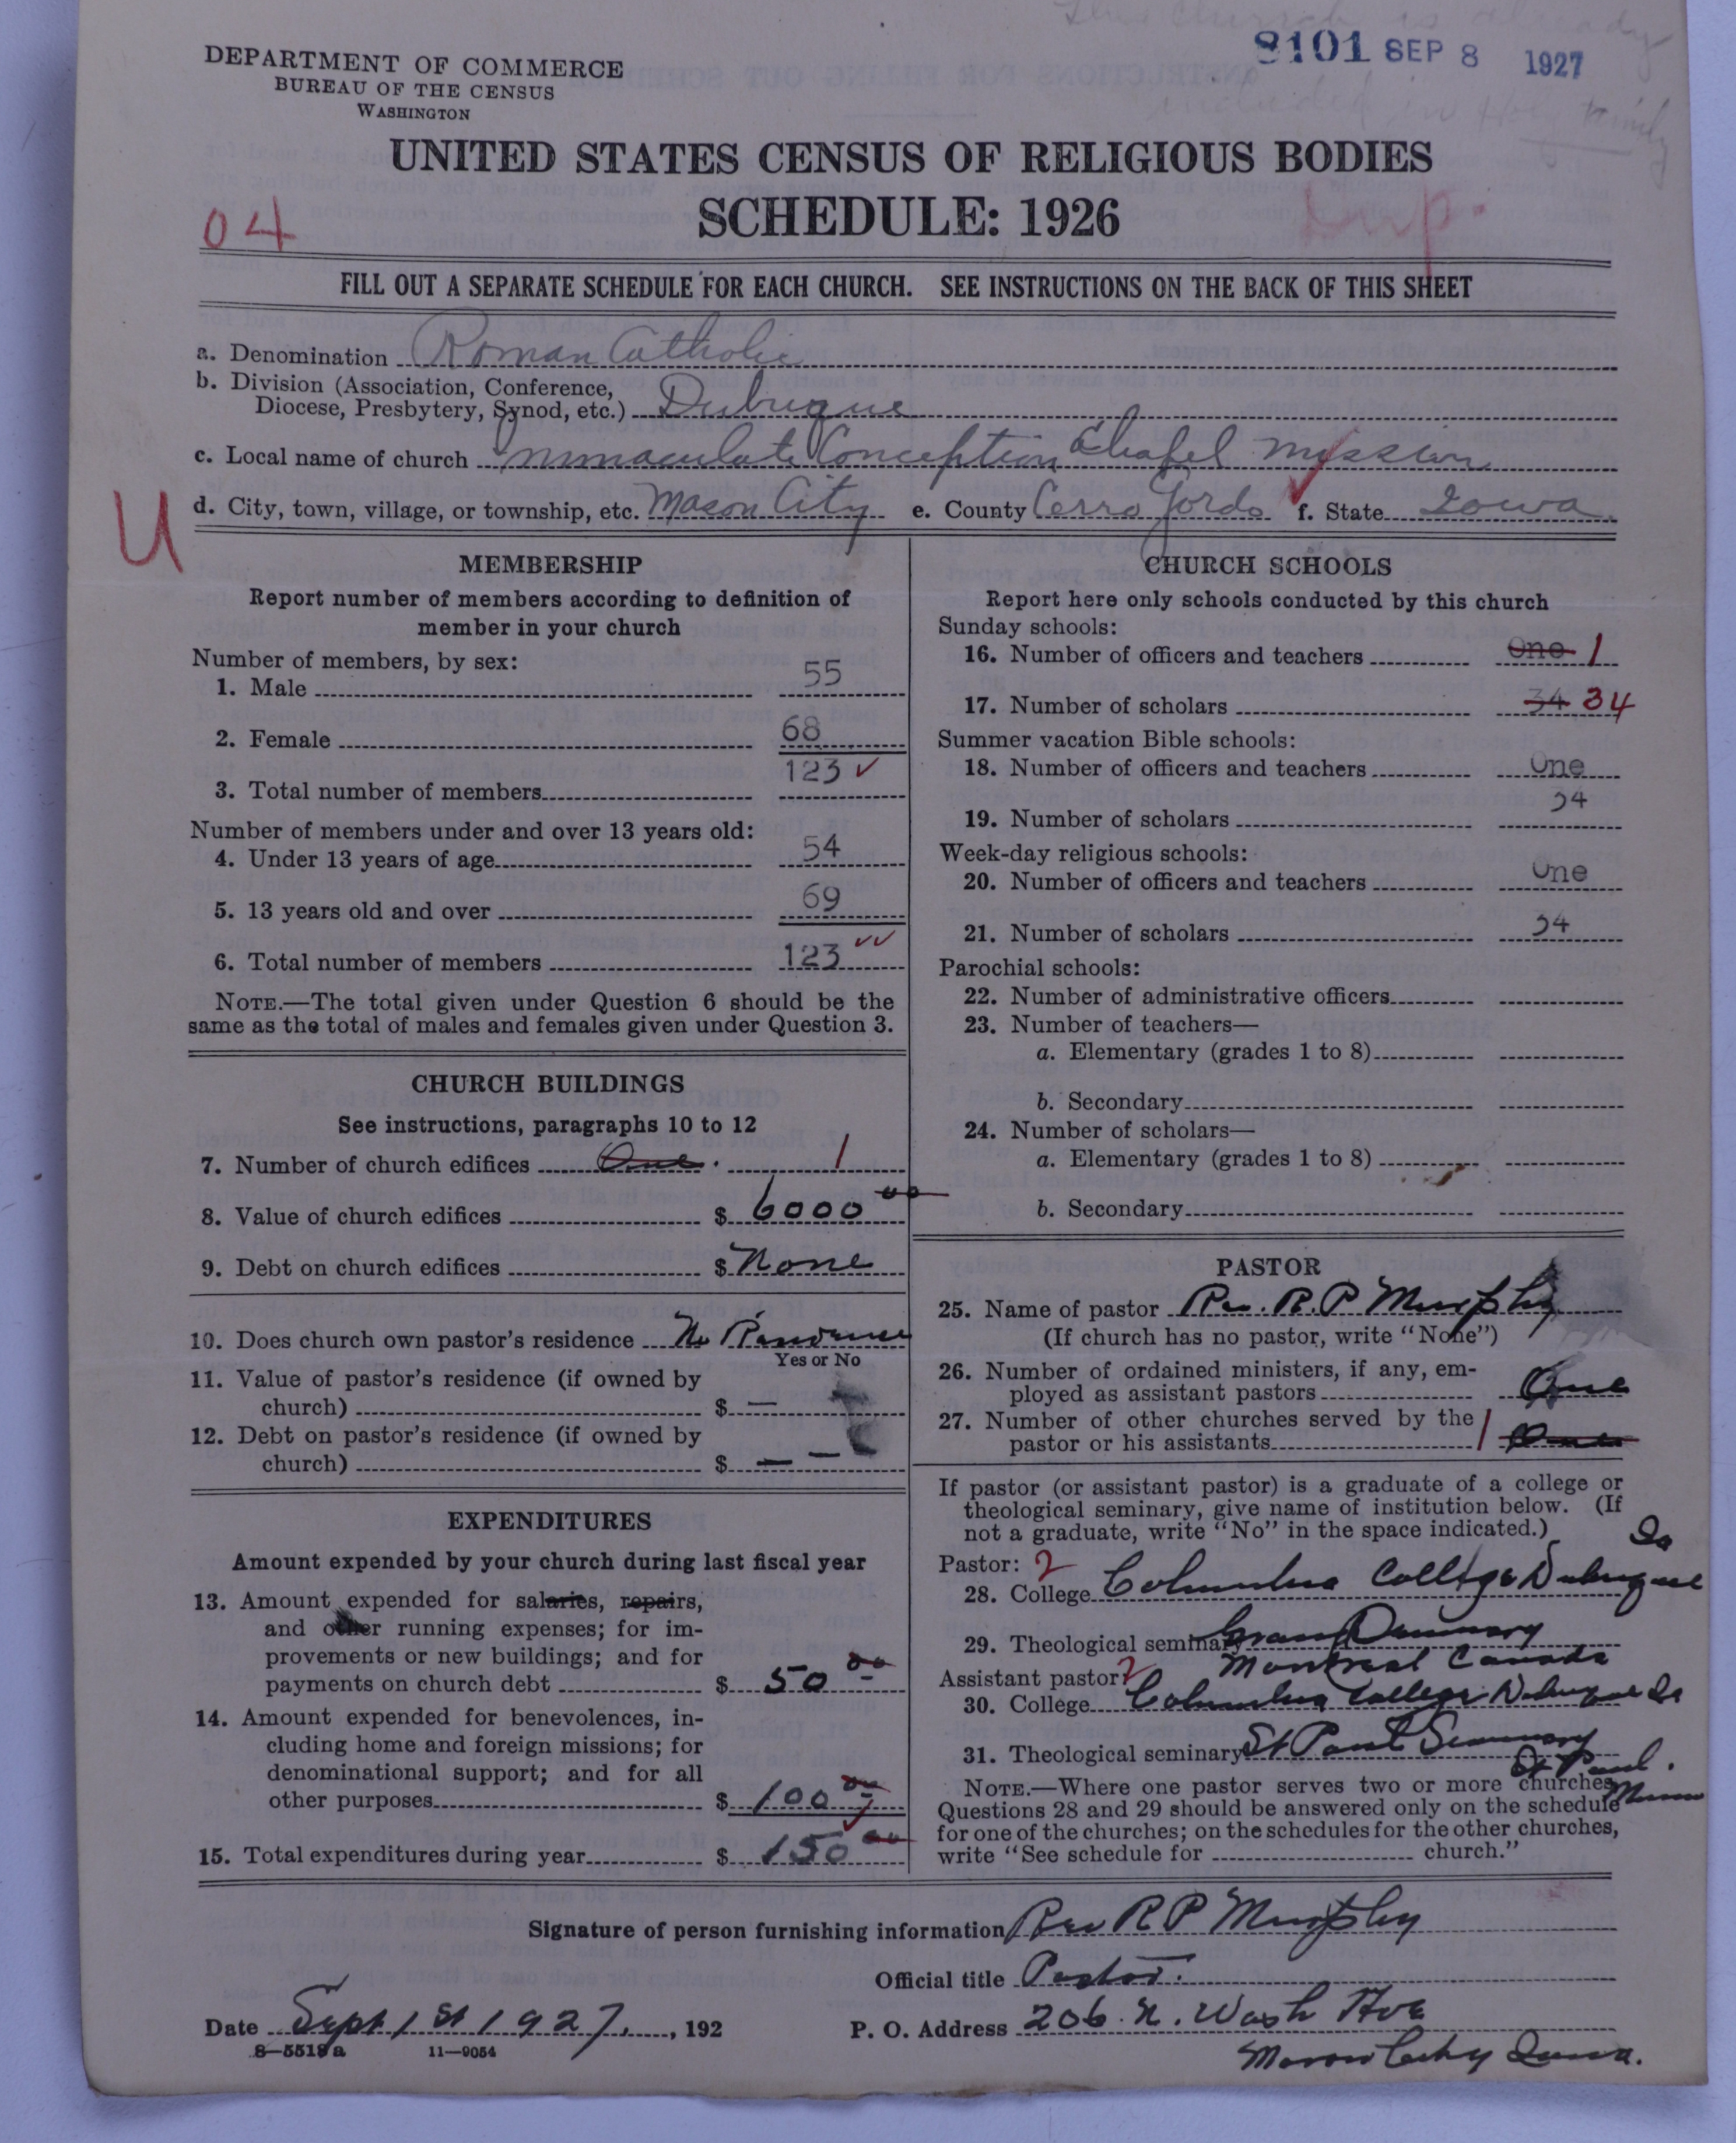 This Church is already
included in Holy Family
8101 SEP 8 1927
DEPARTMENT OF COMMERCE
BUREAU OF THE CENSUS
WASHINGTON
UNITED STATES CENSUS OF RELIGIOUS BODIES
SCHEDULE: 1926
04
Dup.
FILL OUT A SEPARATE SCHEDULE FOR EACH CHURCH. SEE INSTRUCTIONS ON THE BACK OF THIS SHEET
a. Denomination Roman Catholic
b. Division (Association, Conference,
Diocese, Presbytery, Synod, etc.) Dubuque
c. Local name of church Immaculate Conception Chapel Mission
d. City, town, village, or township, etc. Mason City e. County Cerro Gordo f. State Iowa
U
MEMBERSHIP
Report number of members according to definition of
member in your church
Number of members, by sex:
1. Male 55
2. Female 68
3. Total number of members 123 ✓
Number of members under and over 13 years old:
4. Under 13 years of age 54
5. 13 years old and over 69
6. Total number of members 123 ✓✓
NOTE.—The total given under Question 6 should be the
same as the total of males and females given under Question 3.
CHURCH BUILDINGS
See instructions, paragraphs 10 to 12
7. Number of church edifices One. 1
8. Value of church edifices $ 6000 00
9. Debt on church edifices $ None
10. Does church own pastor's residence No Residence
Yes or No
11. Value of pastor's residence (if owned by
church) $ —
12. Debt on pastor's residence (if owned by
church) $ — —
EXPENDITURES
Amount expended by your church during last fiscal year
13. Amount expended for salaries, repairs,
and other running expenses; for im-
provements or new buildings; and for
payments on church debt $ 50 00
14. Amount expended for benevolences, in-
cluding home and foreign missions; for
denominational support; and for all
other purposes $ 100 00
15. Total expenditures during year $ 150 00
CHURCH SCHOOLS
Report here only schools conducted by this church
Sunday schools:
16. Number of officers and teachers One 1
17. Number of scholars 34 34
Summer vacation Bible schools:
18. Number of officers and teachers One
19. Number of scholars 34
Week-day religious schools:
20. Number of officers and teachers One
21. Number of scholars 34
Parochial schools:
22. Number of administrative officers
23. Number of teachers—
a. Elementary (grades 1 to 8)
b. Secondary
24. Number of scholars—
a. Elementary (grades 1 to 8)
b. Secondary
PASTOR
25. Name of pastor Rev. R. P Murphy
(If church has no pastor, write "None")
26. Number of ordained ministers, if any, em-
ployed as assistant pastors One
27. Number of other churches served by the
pastor or his assistants 1 One
If pastor (or assistant pastor) is a graduate of a college or
theological seminary, give name of institution below. (If
not a graduate, write "No" in the space indicated.)
Pastor: 2
28. College Columbia College Dubuque Ia
29. Theological seminary Grand Seminary
Montreal Canada
Assistant pastor: 2
30. College Columbia College Dubuque Ia
31. Theological seminary St Paul Seminary
St Paul. Minn
NOTE.—Where one pastor serves two or more churches,
Questions 28 and 29 should be answered only on the schedule
for one of the churches; on the schedules for the other churches,
write "See schedule for church."
Signature of person furnishing information Rev R P Murphy
Official title Pastor.
Date Sept 1st 1927, 192
P. O. Address 206 N. Wash Ave
Mason City Iowa.
8—5518a 11—9054